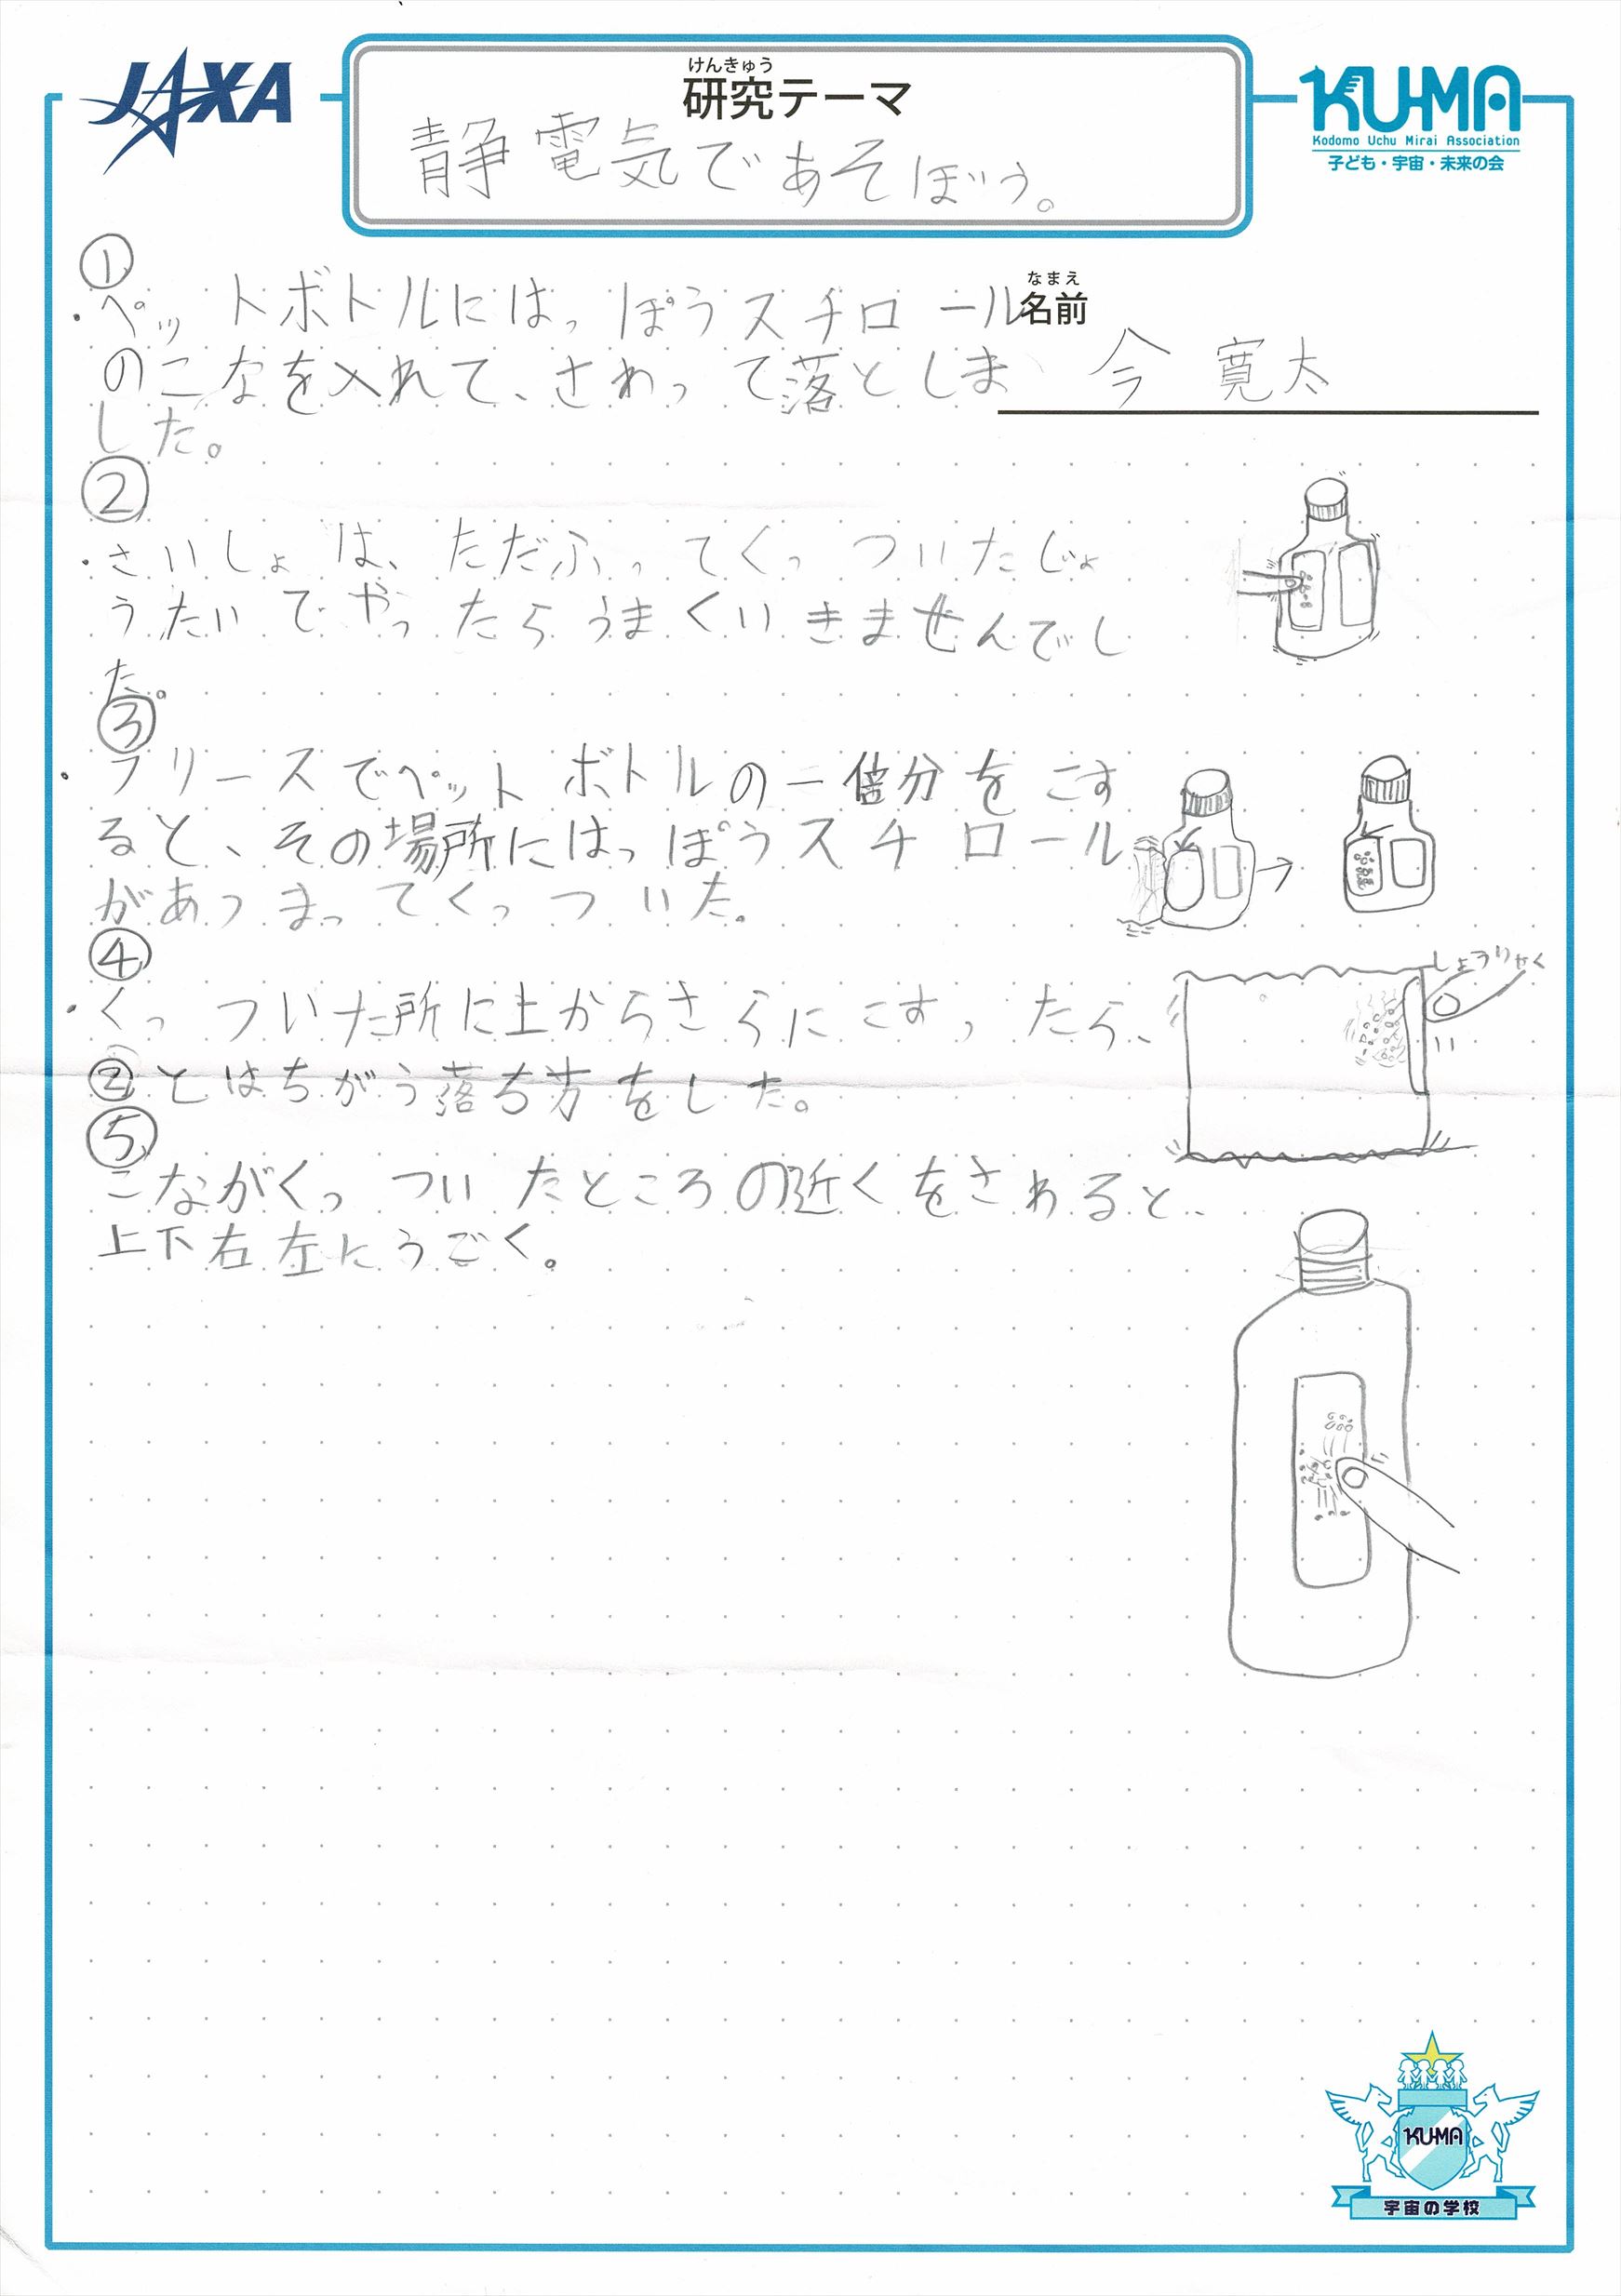 JAXA
けんきゅう
研究テーマ
静電気であそぼう。
KU-MA
Kodomo Uchu Mirai Association
子ども・宇宙・未来の会
①
・ペットボトルにはっぽうスチロール
なまえ
名前
のこなを入れて、さわって落としま
今 寛太
した。
②
・さいしょは、ただふってくっついたじょ
うたいでやったらうまくいきませんでし
た。
③
・フリースでペットボトルの一倍分をこす
ると、その場所にはっぽうスチロール
があつまってくっついた。
④
しょうりゃく
・くっついた所に上からさらにこすったら、
②とはちがう落ち方をした。
⑤
こながくっついたところの近くをさわると、
上下右左にうごく。
KU-MA
宇宙の学校